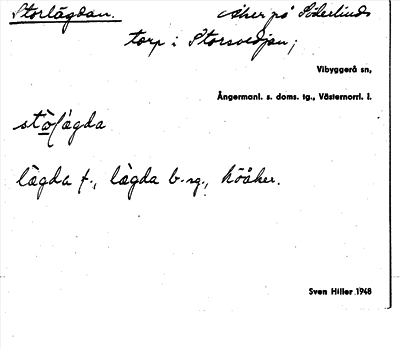 Storlägdan. Åker på Söderlunds
torp i Storsvedjan;
Vibyggerå sn,
Ångermanl. s. doms. tg., Västernorrl. l.
stòlä̀gda
lägda f., lä̀gda b. sg., höåker.
Sven Hiller 1948